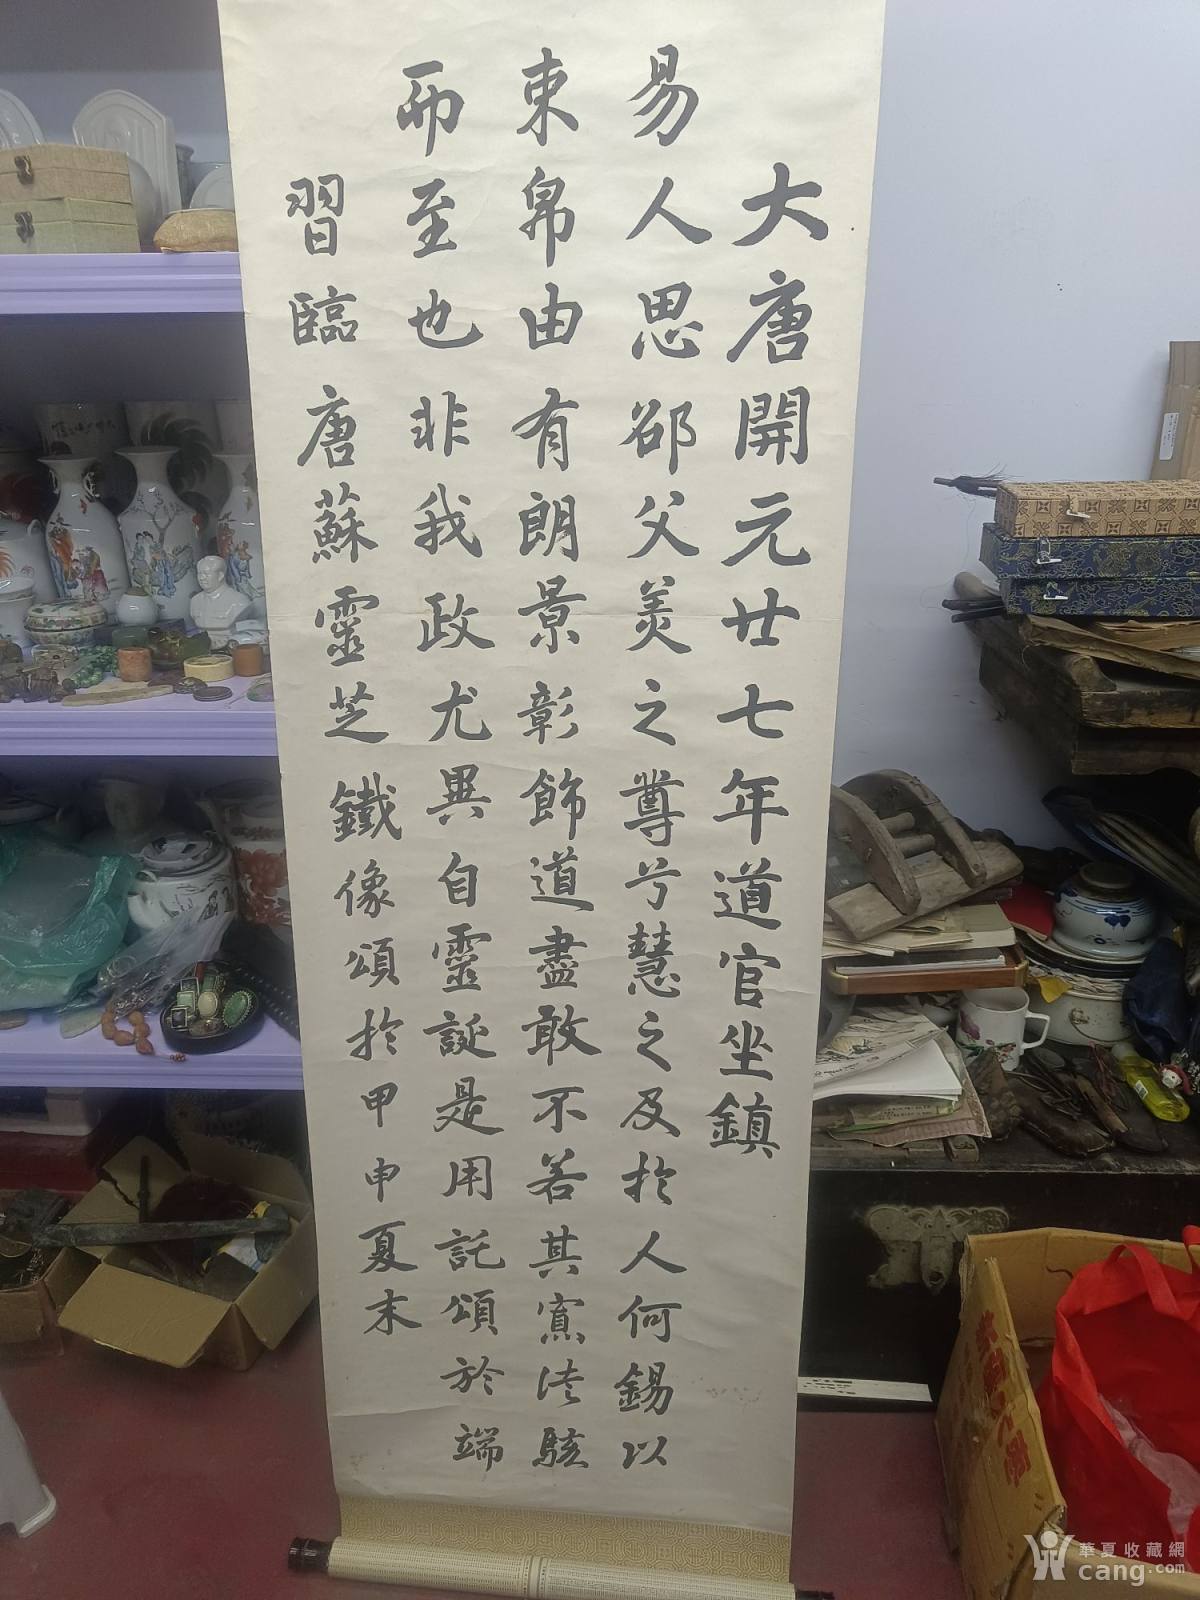 大唐開元廿七年道官坐鎮
易人思邵父美之尊兮慧之及於人何錫以
束帛由有朗景彰飾道盡敢不若其寘法駭
而至也非我政尤異自靈誕是用託頌於端
習臨唐蘇靈芝鐵像頌於甲申夏末
華夏收藏網
cang.com